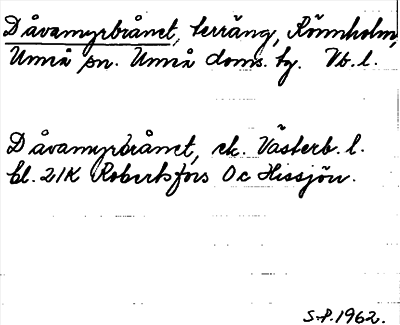 Dåvamyrbrånet, terräng, Rönnholm,
Umeå sn. Umeå doms. tg. Vb. l.
Dåvamyrbrånet, ek. Västerb. l.
bl. 21K Robertsfors Oc Hissjön.
S.P. 1962.